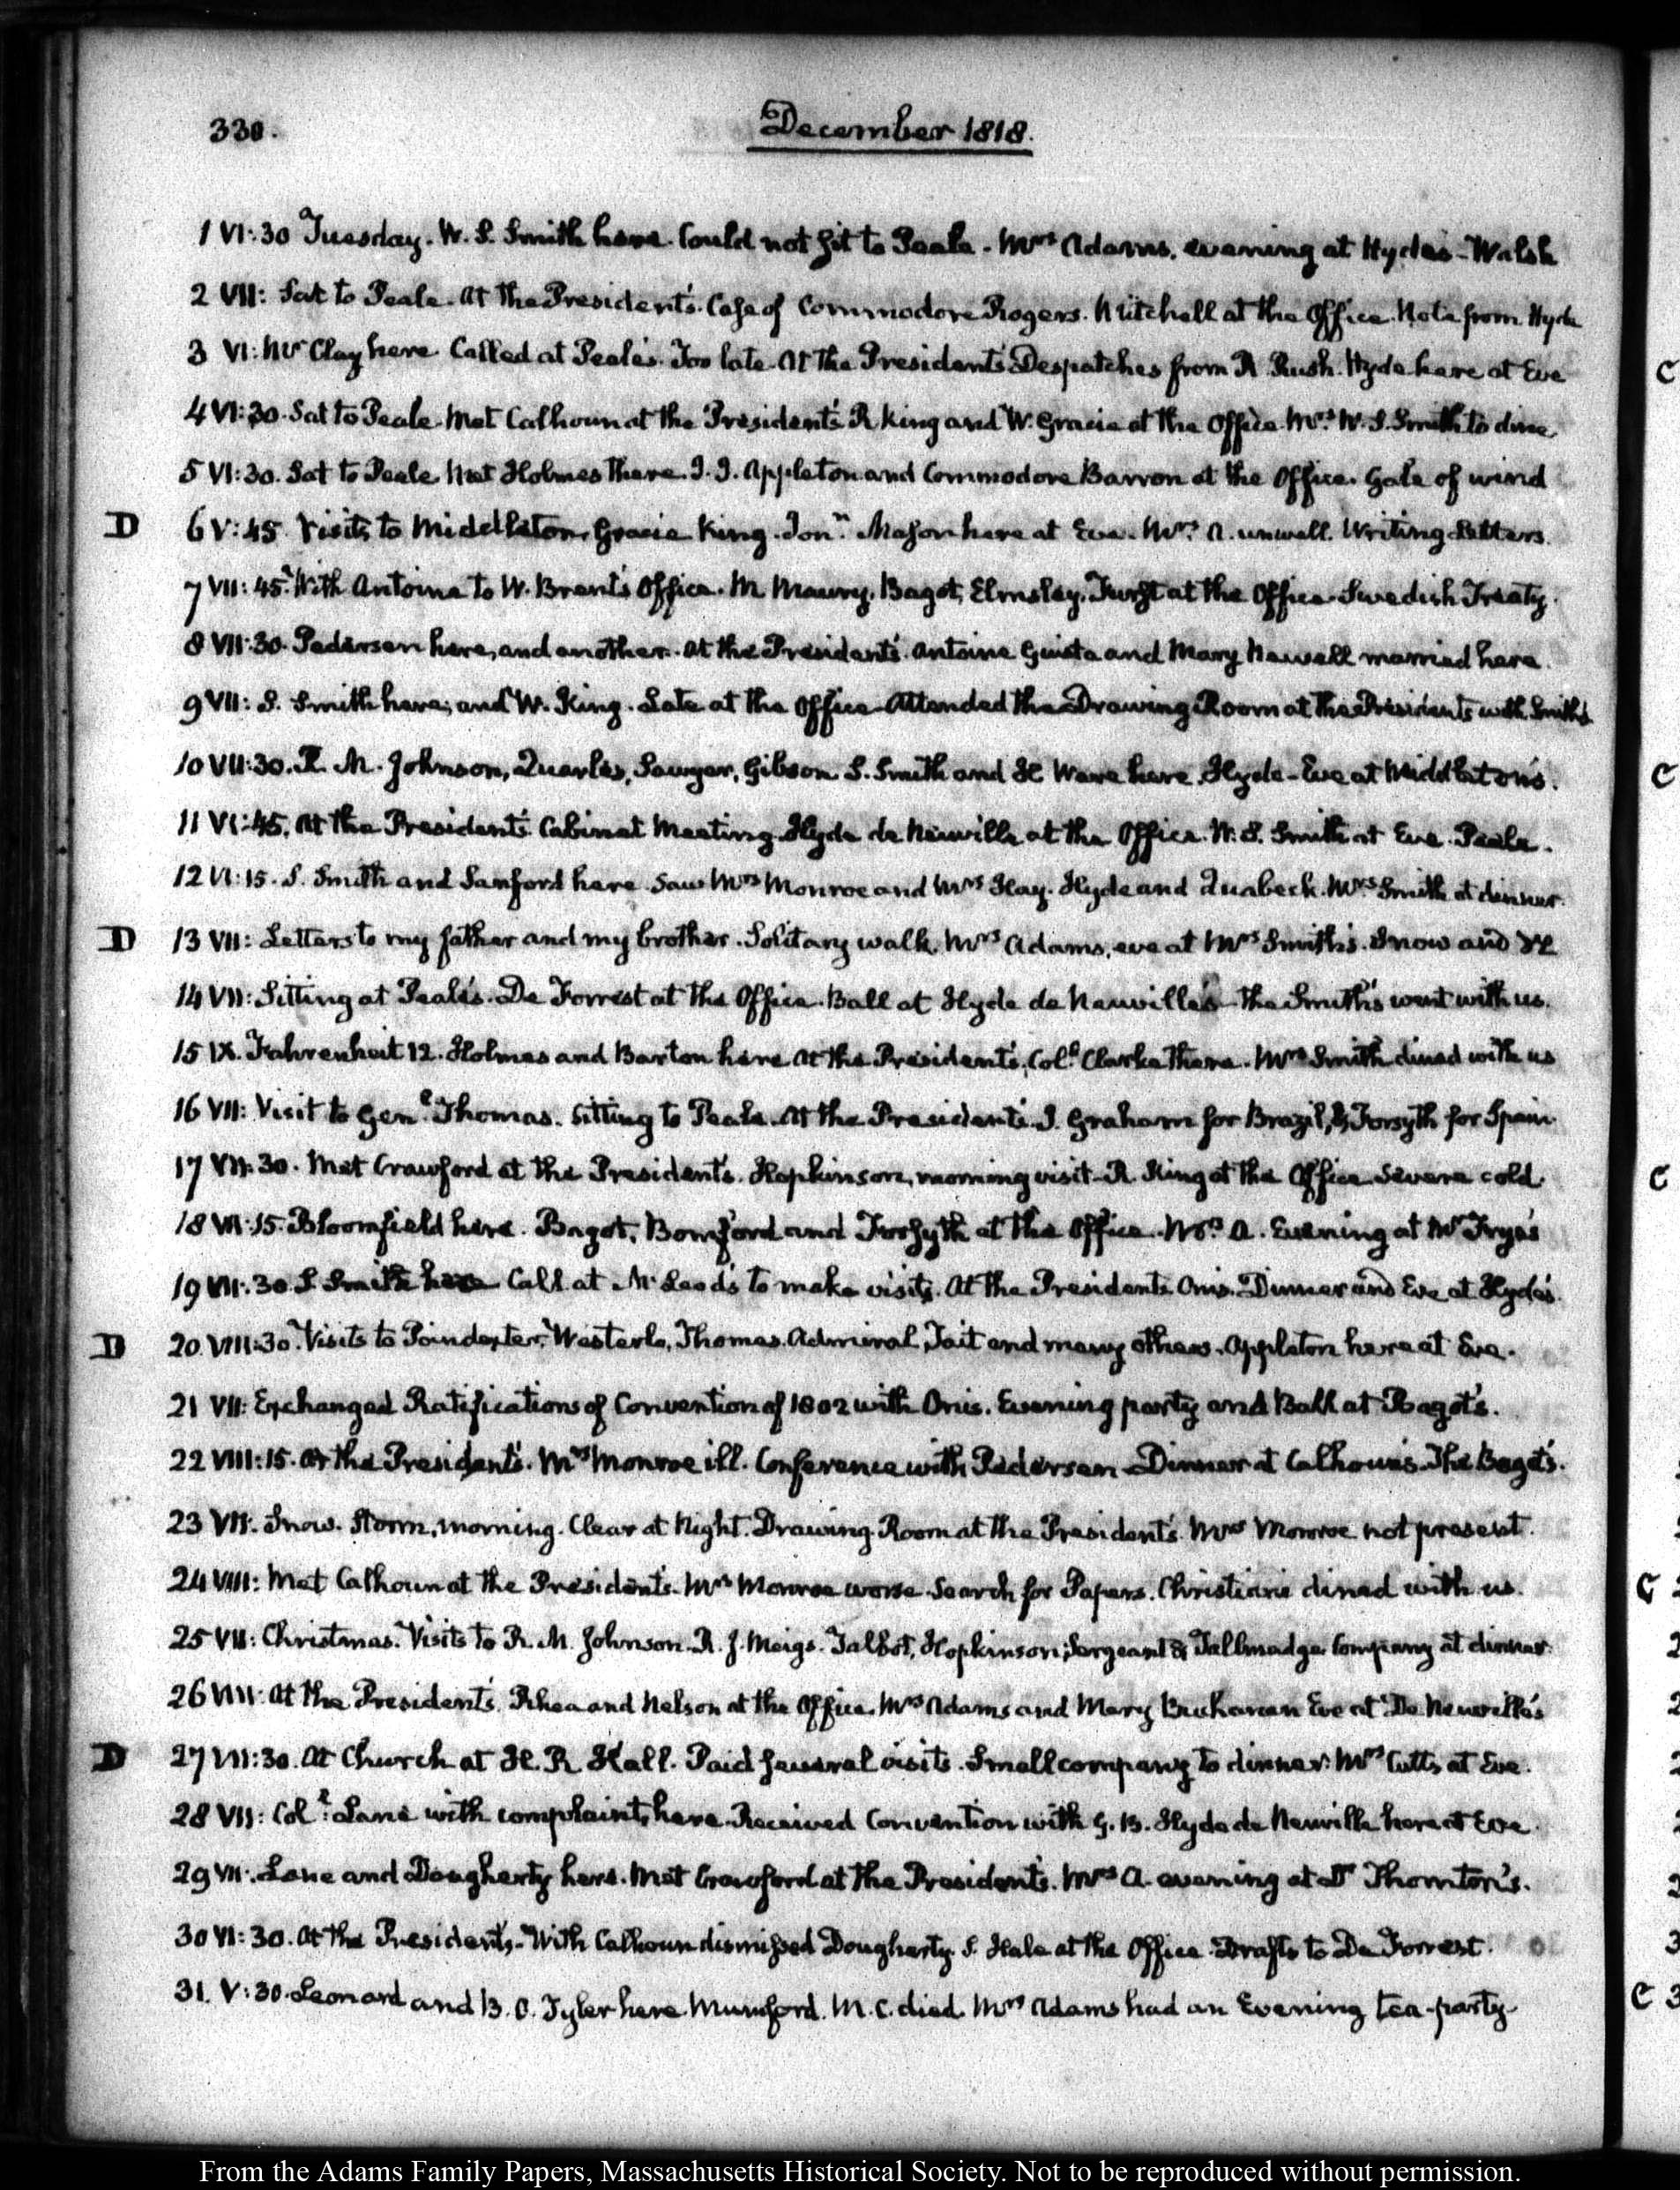 330.
December 1818.
1 VI:30 Tuesday. W. S. Smith here. Could not sit to Peale. Mrs Adams, evening at Hyde's - Walsh
2 VII: Sat to Peale. At the President's. Case of Commodore Rogers. Mitchell at the Office. Note from Hyde
3 VI: Mr Clay here. Called at Peale's. Too late. At the President's. Despatches from R Rush. Hyde here at Eve
4 VI:30. Sat to Peale. Met Calhoun at the President's. R King and W. Gracie at the Office. Mrs W. S. Smith to dine
5 VI:30. Sat to Peale. Met Holmes there. J. J. Appleton and Commodore Barron at the Office. Gale of wind
D 6 V:45 Visits to Middleton, Gracie King. Jonn. Mason here at Eve. Mrs A. unwell. Writing Letters.
7 VII:45. With Antoine to W. Brent's Office. M Maury, Bagot, Elmsley, Furst at the Office. Swedish Treaty.
8 VII:30. Pedersen here, and another. At the President's. Antoine Guista and Mary Newell married here.
9 VII: S. Smith here; and W. King. Late at the Office. Attended the Drawing Room at the President's with Smiths
10 VII:30. R. M. Johnson, Quarles, Sawyer, Gibson. S. Smith and H Ware here. Hyde - Eve at Middleton's.
11 VI:45. At the President's. Cabinet Meeting. Hyde de Neuville at the Office. W. S. Smith at Eve. Peale.
12 VI:15. S. Smith and Sanford here. Saw Mrs Monroe and Mrs Hay. Hyde and Quabeck. Mrs Smith at dinner.
D 13 VII: Letters to my father and my brother. Solitary walk. Mrs Adams, eve at Mrs Smith's. Snow and
14 VII: Sitting at Peale's. De Forrest at the Office. Ball at Hyde de Neuville's - The Smith's went with us.
15 IX. Fahrenheit 12. Holmes and Barton here. At the President's. Coll. Clarke there. Mrs Smith dined with us
16 VII: Visit to Genl. Thomas. Sitting to Peale. At the President's. J. Graham for Brazil, & Forsyth for Spain.
17 VII:30. Met Crawford at the President's. Hopkinson, morning visit - R. King at the Office. Severe cold.
18 VII:15. Bloomfield here. Bagot, Bomford and Forsyth at the Office. Mrs A. Evening at Mr Frye's
19 VII:30. S Smith here Call at McLeod's to make visits. At the President's. Onis. Dinner and Eve at Hyde's.
D 20 VIII:30. Visits to Poindexter, Westerlo, Thomas. Admiral, Tait and many others. Appleton here at Eve.
21 VII: Exchanged Ratifications of Convention of 1802 with Onis. Evening party and Ball at Bagot's.
22 VIII:15. At the President's. Mrs Monroe ill. Conference with Pedersen - Dinner at Calhoun's. The Bagot's.
23 VII. Snow. Storm, morning. Clear at Night. Drawing Room at the President's. Mrs Monroe not present.
24 VIII: Met Calhoun at the President's. Mrs Monroe worse. Search for Papers. Christiani dined with us.
25 VII: Christmas. Visits to R. M. Johnson. R. J. Meigs. Talbot, Hopkinson, Sergeant & Tallmadge. Company at dinner.
26 VIII: At the President's. Rhea and Nelson at the Office. Mrs Adams and Mary Buchanan Eve at De Neuville's
D 27 VII:30. At Church at H. R. Hall. Paid several visits. Small company to dinner. Mrs Cutts at Eve.
28 VII: Coll. Lane with complaint, here. Received Convention with G. B. Hyde de Neuville here at Eve.
29 VII. Lane and Dougherty here. Met Crawford at the President's. Mrs A. evening at Dr Thornton's.
30 VI:30. At the President's. With Calhoun dismissed Dougherty. S. Hale at the Office. Drafts to De Forrest.
31. V:30. Leonard and B. O. Tyler here. Mumford. M. C. died. Mrs Adams had an Evening tea-party
From the Adams Family Papers, Massachusetts Historical Society. Not to be reproduced without permission.